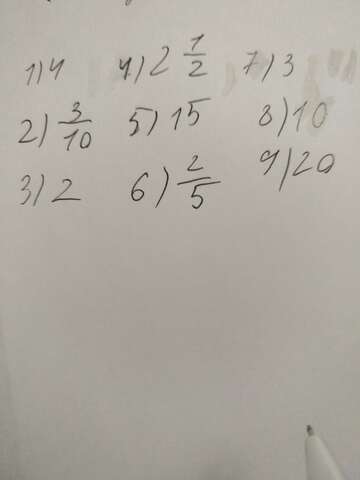 1) 4 4) 2 1/2 7) 3
2) 3/10 5) 15 8) 10
3) 2 6) 2/5 9) 20